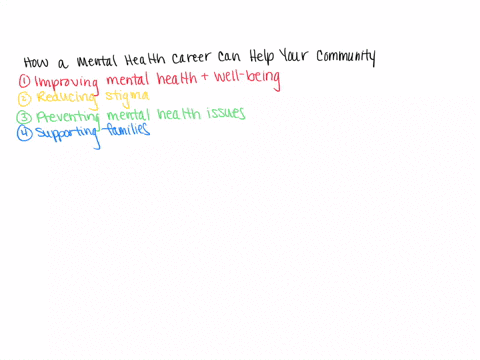 How a Mental Health Career Can Help Your Community
① Improving mental health + well-being
② Reducing stigma
③ Preventing mental health issues
④ Supporting families